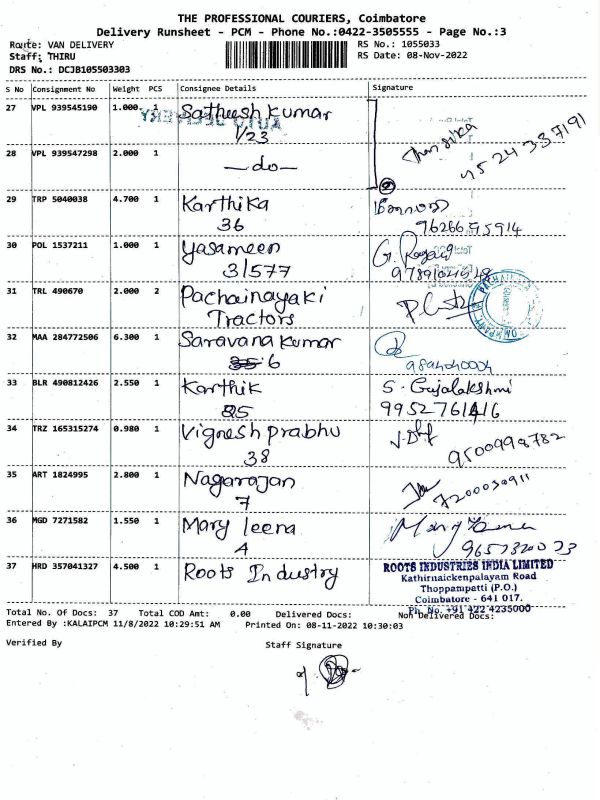 THE PROFESSIONAL COURIERS, Coimbatore
Delivery Runsheet - PCM - Phone No.:0422-3505555 - Page No.:3
Route: VAN DELIVERY
RS No.: 1055033
Staff: THIRU
RS Date: 08-Nov-2022
DRS No.: DCJB105503303
S No Consignment No Weight PCS Consignee Details Signature
27 VPL 939545190 1.000 1 Satheesh Kumar
1/23
28 VPL 939547298 2.000 1 —do—
29 TRP 5040038 4.700 1 Karthika
36 9626695914
30 POL 1537211 1.000 1 Yasameen
31577
31 TRL 490670 2.000 2 Pachainayaki
Tractors
32 MAA 284772506 6.300 1 Saravana Kumar
6
33 BLR 490812426 2.550 1 Karthik S. Gujalakshmi
9952761416
34 TRZ 165315274 0.980 1 Vignesh prabhu
38 9500998782
35 ART 1824995 2.800 1 Nagarajan
7 7200030911
36 MGD 7271582 1.550 1 Mary leena
A
37 HRD 357041327 4.500 1 Roots Industry
ROOTS INDUSTRIES INDIA LIMITED
Kathirnaickenpalayam Road
Thoppampatti (P.O.)
Coimbatore - 641 017.
Ph. No. +91 422 4235000
Total No. Of Docs: 37 Total COD Amt: 0.00 Delivered Docs: Non Delivered Docs:
Entered By :KALAIPCM 11/8/2022 10:29:51 AM Printed On: 08-11-2022 10:30:03
Verified By Staff Signature